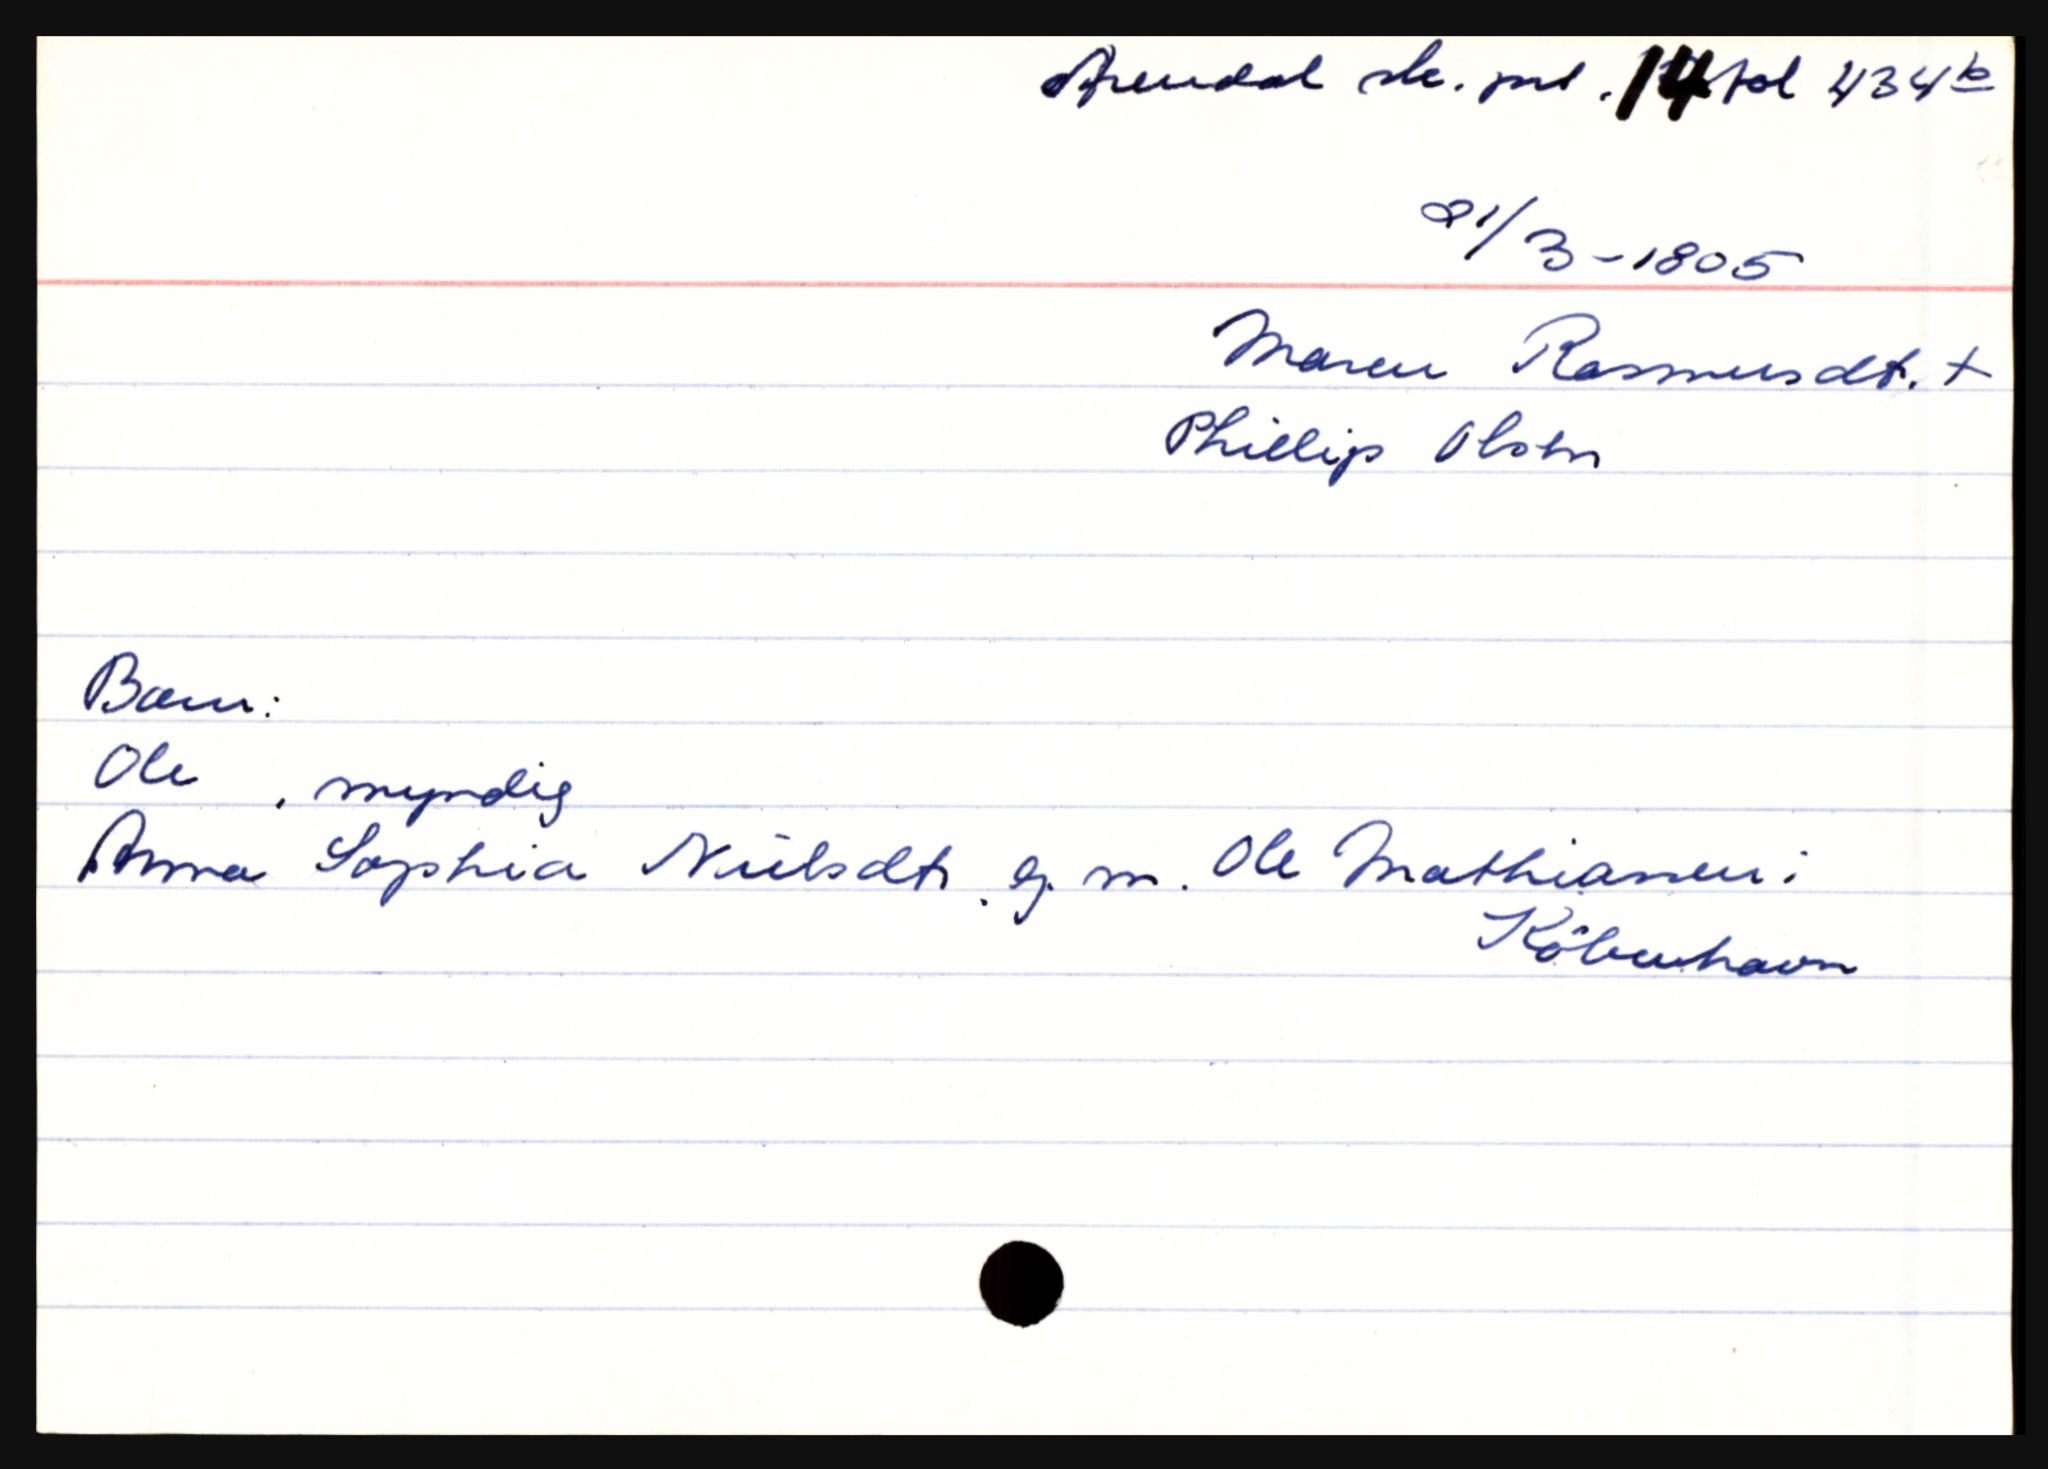 Arendal sk. prt. 14 fol 434b
21/3-1805
Maren Rasmusdt. +
Phillip Olsen
Barn:
Ole , myndig
Anna Sophia Nielsdt. g. m. Ole Mathiassen i
Köbenhavn